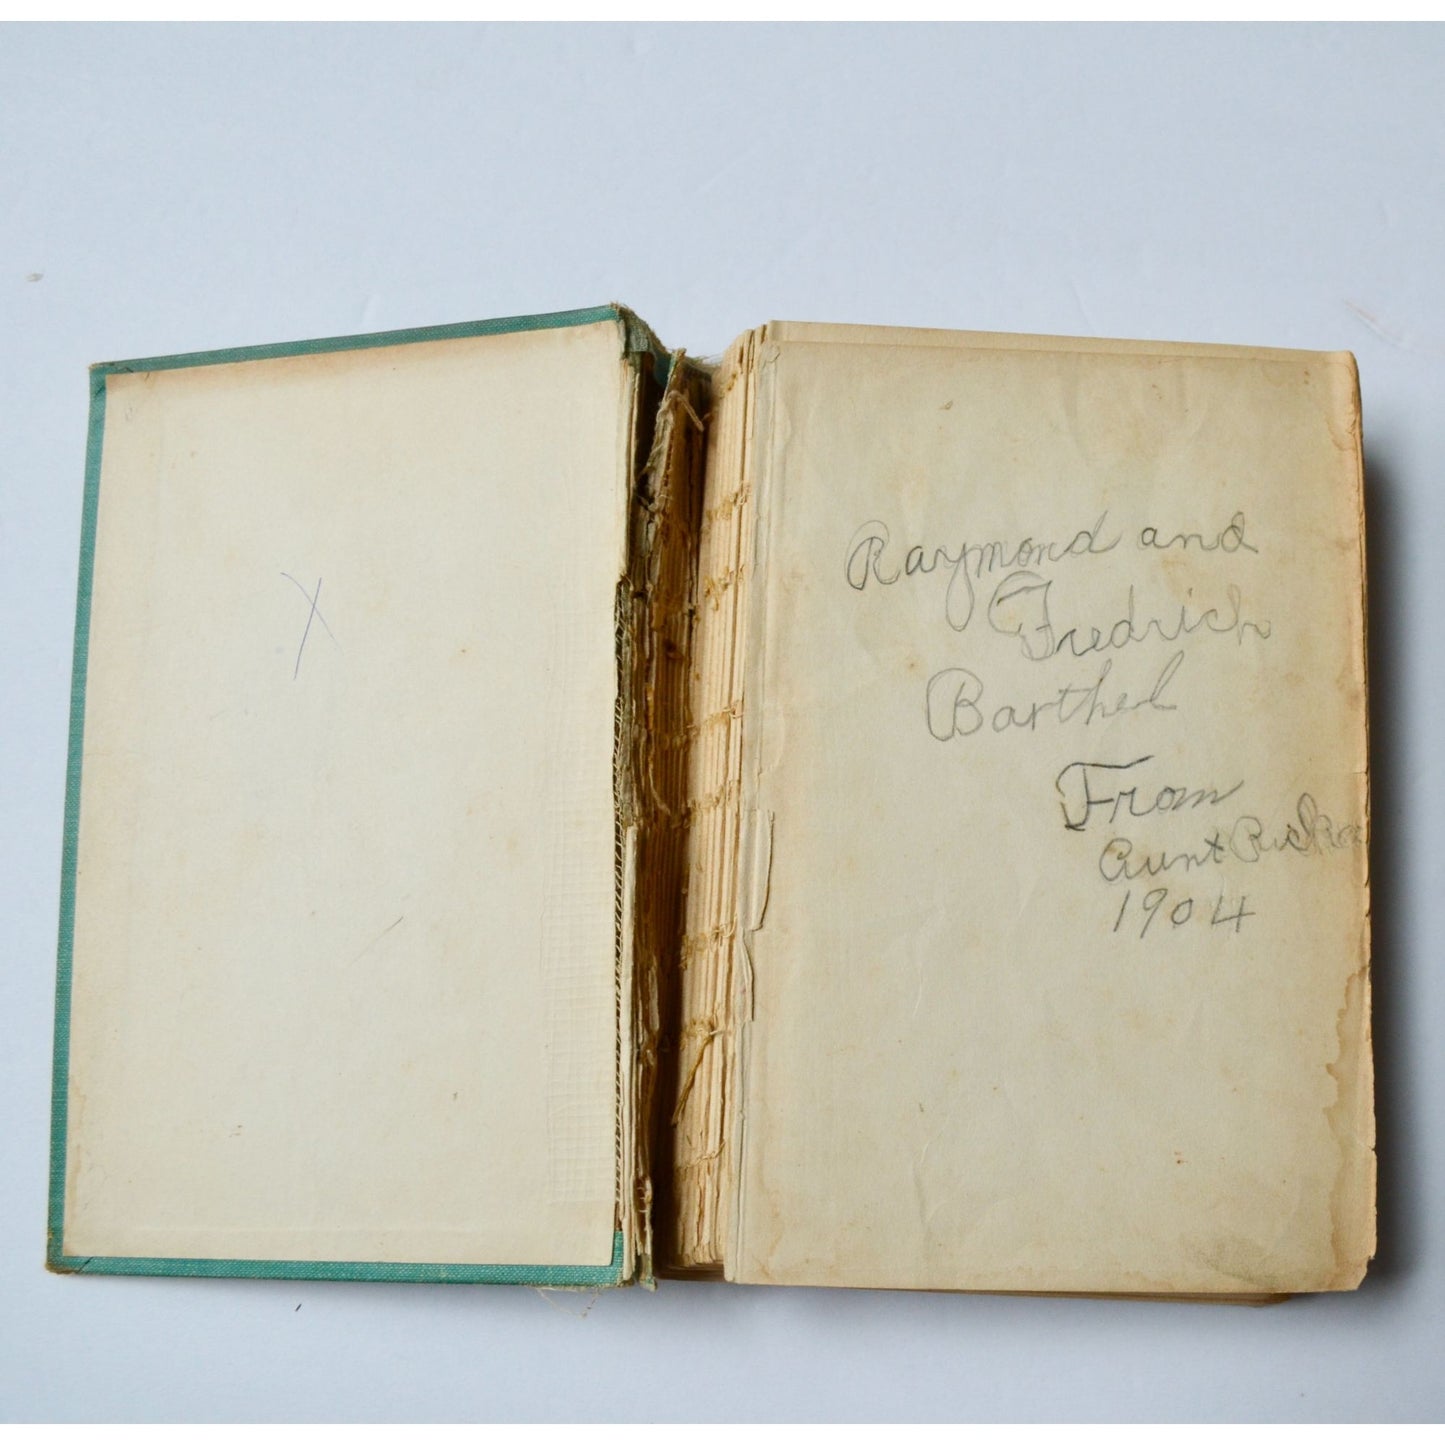 Raymond and
Fredrich
Barthel
From
Aunt Ricka
1904
X